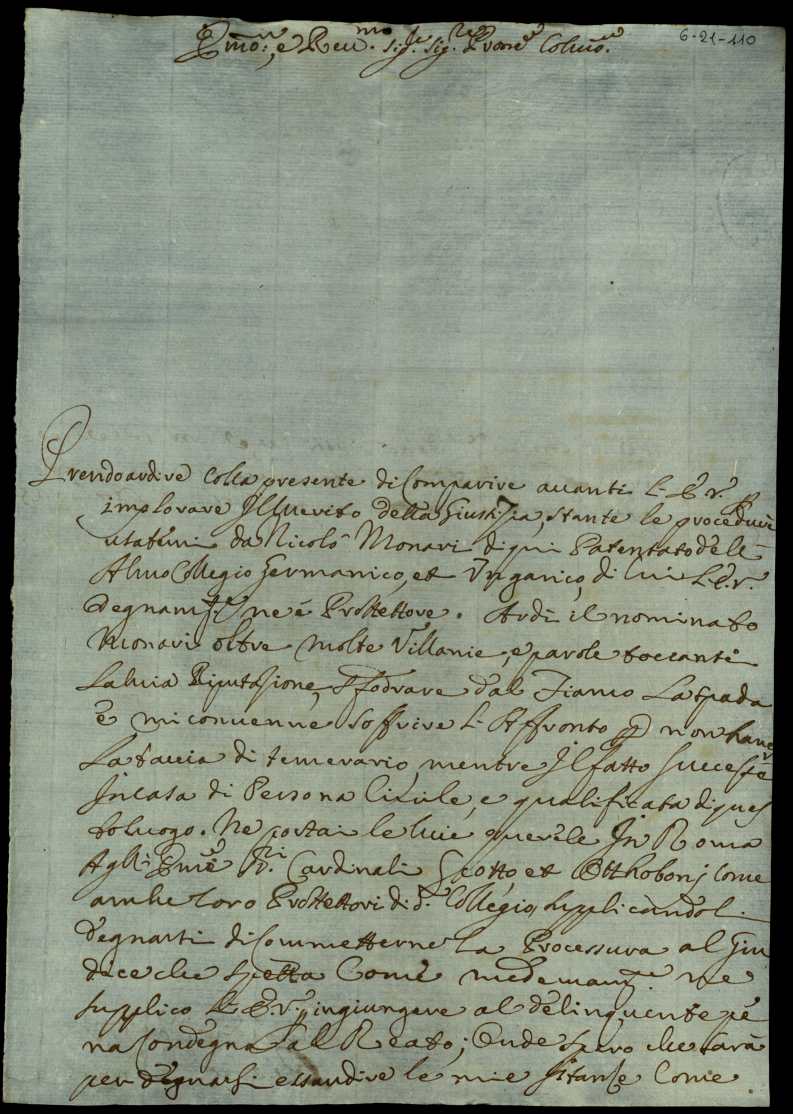 Emo:, e Reu.mo Sig.re Sig.re Prone Colmo.
6-21-110
Prendo ardire colla presente di Comparire auanti L. E. V. P
implorare Il Suerito della Giustizia, stante le procedure
usatemi da Nicolò Monari di qui Patentato dell
Almo Collegio Germanico, et Vngarico, di cui L. E. V.
degnam.te ne è Prottettore. Ardì il nominato
Monari oltre molte Villanie, e parole toccanti
La mia Riputazione, Sfodrare dal Fianco La spada
e mi conuenne Soffrire L'Affronto p non hauer
La taccia di temerario, mentre Il fatto Successe
In casa di Persona Ciuile, e qualificata di ques
to luogo. Ne portai le mie querele In Roma
Agli Emi SS.ri Cardinali Scotto et Otthobonj come
anche loro Prottettori di d.o Collegio, supplicandoli
degnarsi di Commetterne La Processura al Giu
dece che spetta Come medemam.te ne
supplico L. E. V. ingiungere al delinquente pe
na Condegna al Reato; Onde spero che sarà
per degnarsi essaudire le mie Istanze Come